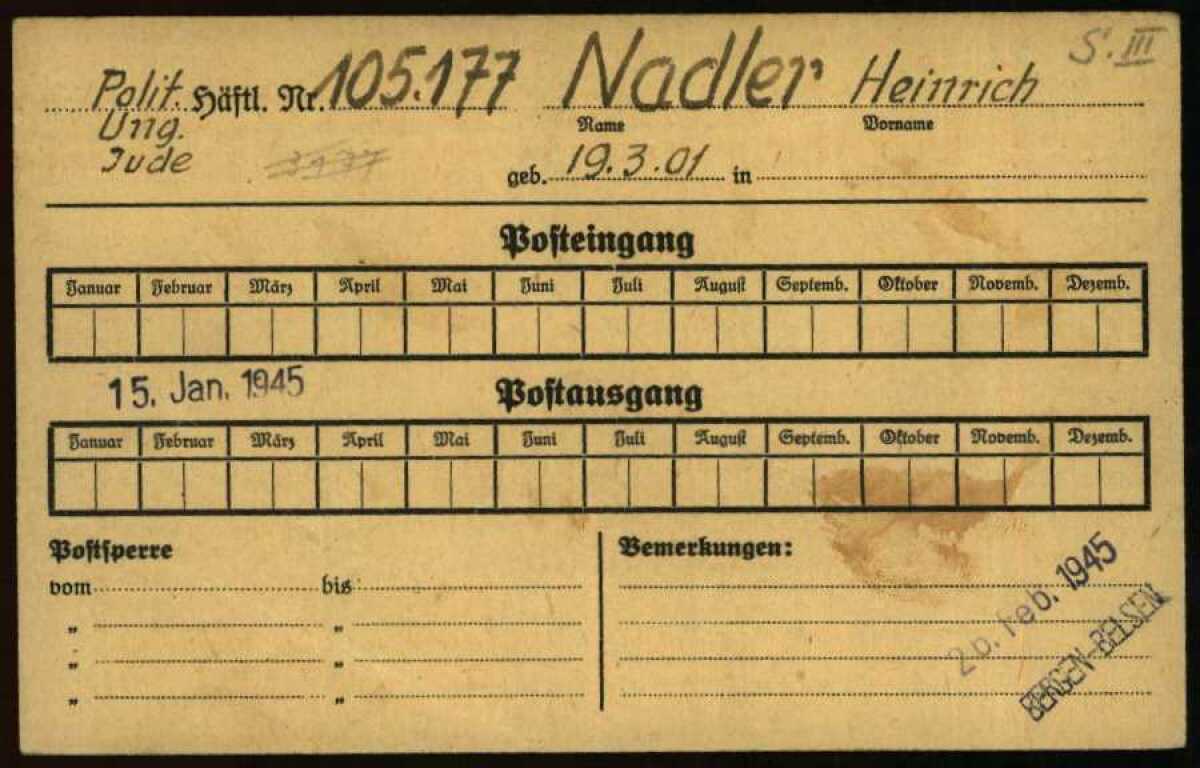 S. III
Polit. Häftl. Nr. 105.177 Nadler Heinrich
Ung. Name Vorname
Jude geb. 19.3.01 in
Posteingang
Januar Februar März April Mai Juni Juli August Septemb. Oktober Novemb. Dezemb.
15. Jan. 1945 Postausgang
Januar Februar März April Mai Juni Juli August Septemb. Oktober Novemb. Dezemb.
Postsperre Bemerkungen:
vom bis
„ „
„ „
„ „
Feb. 1945
BERGEN-BELSEN